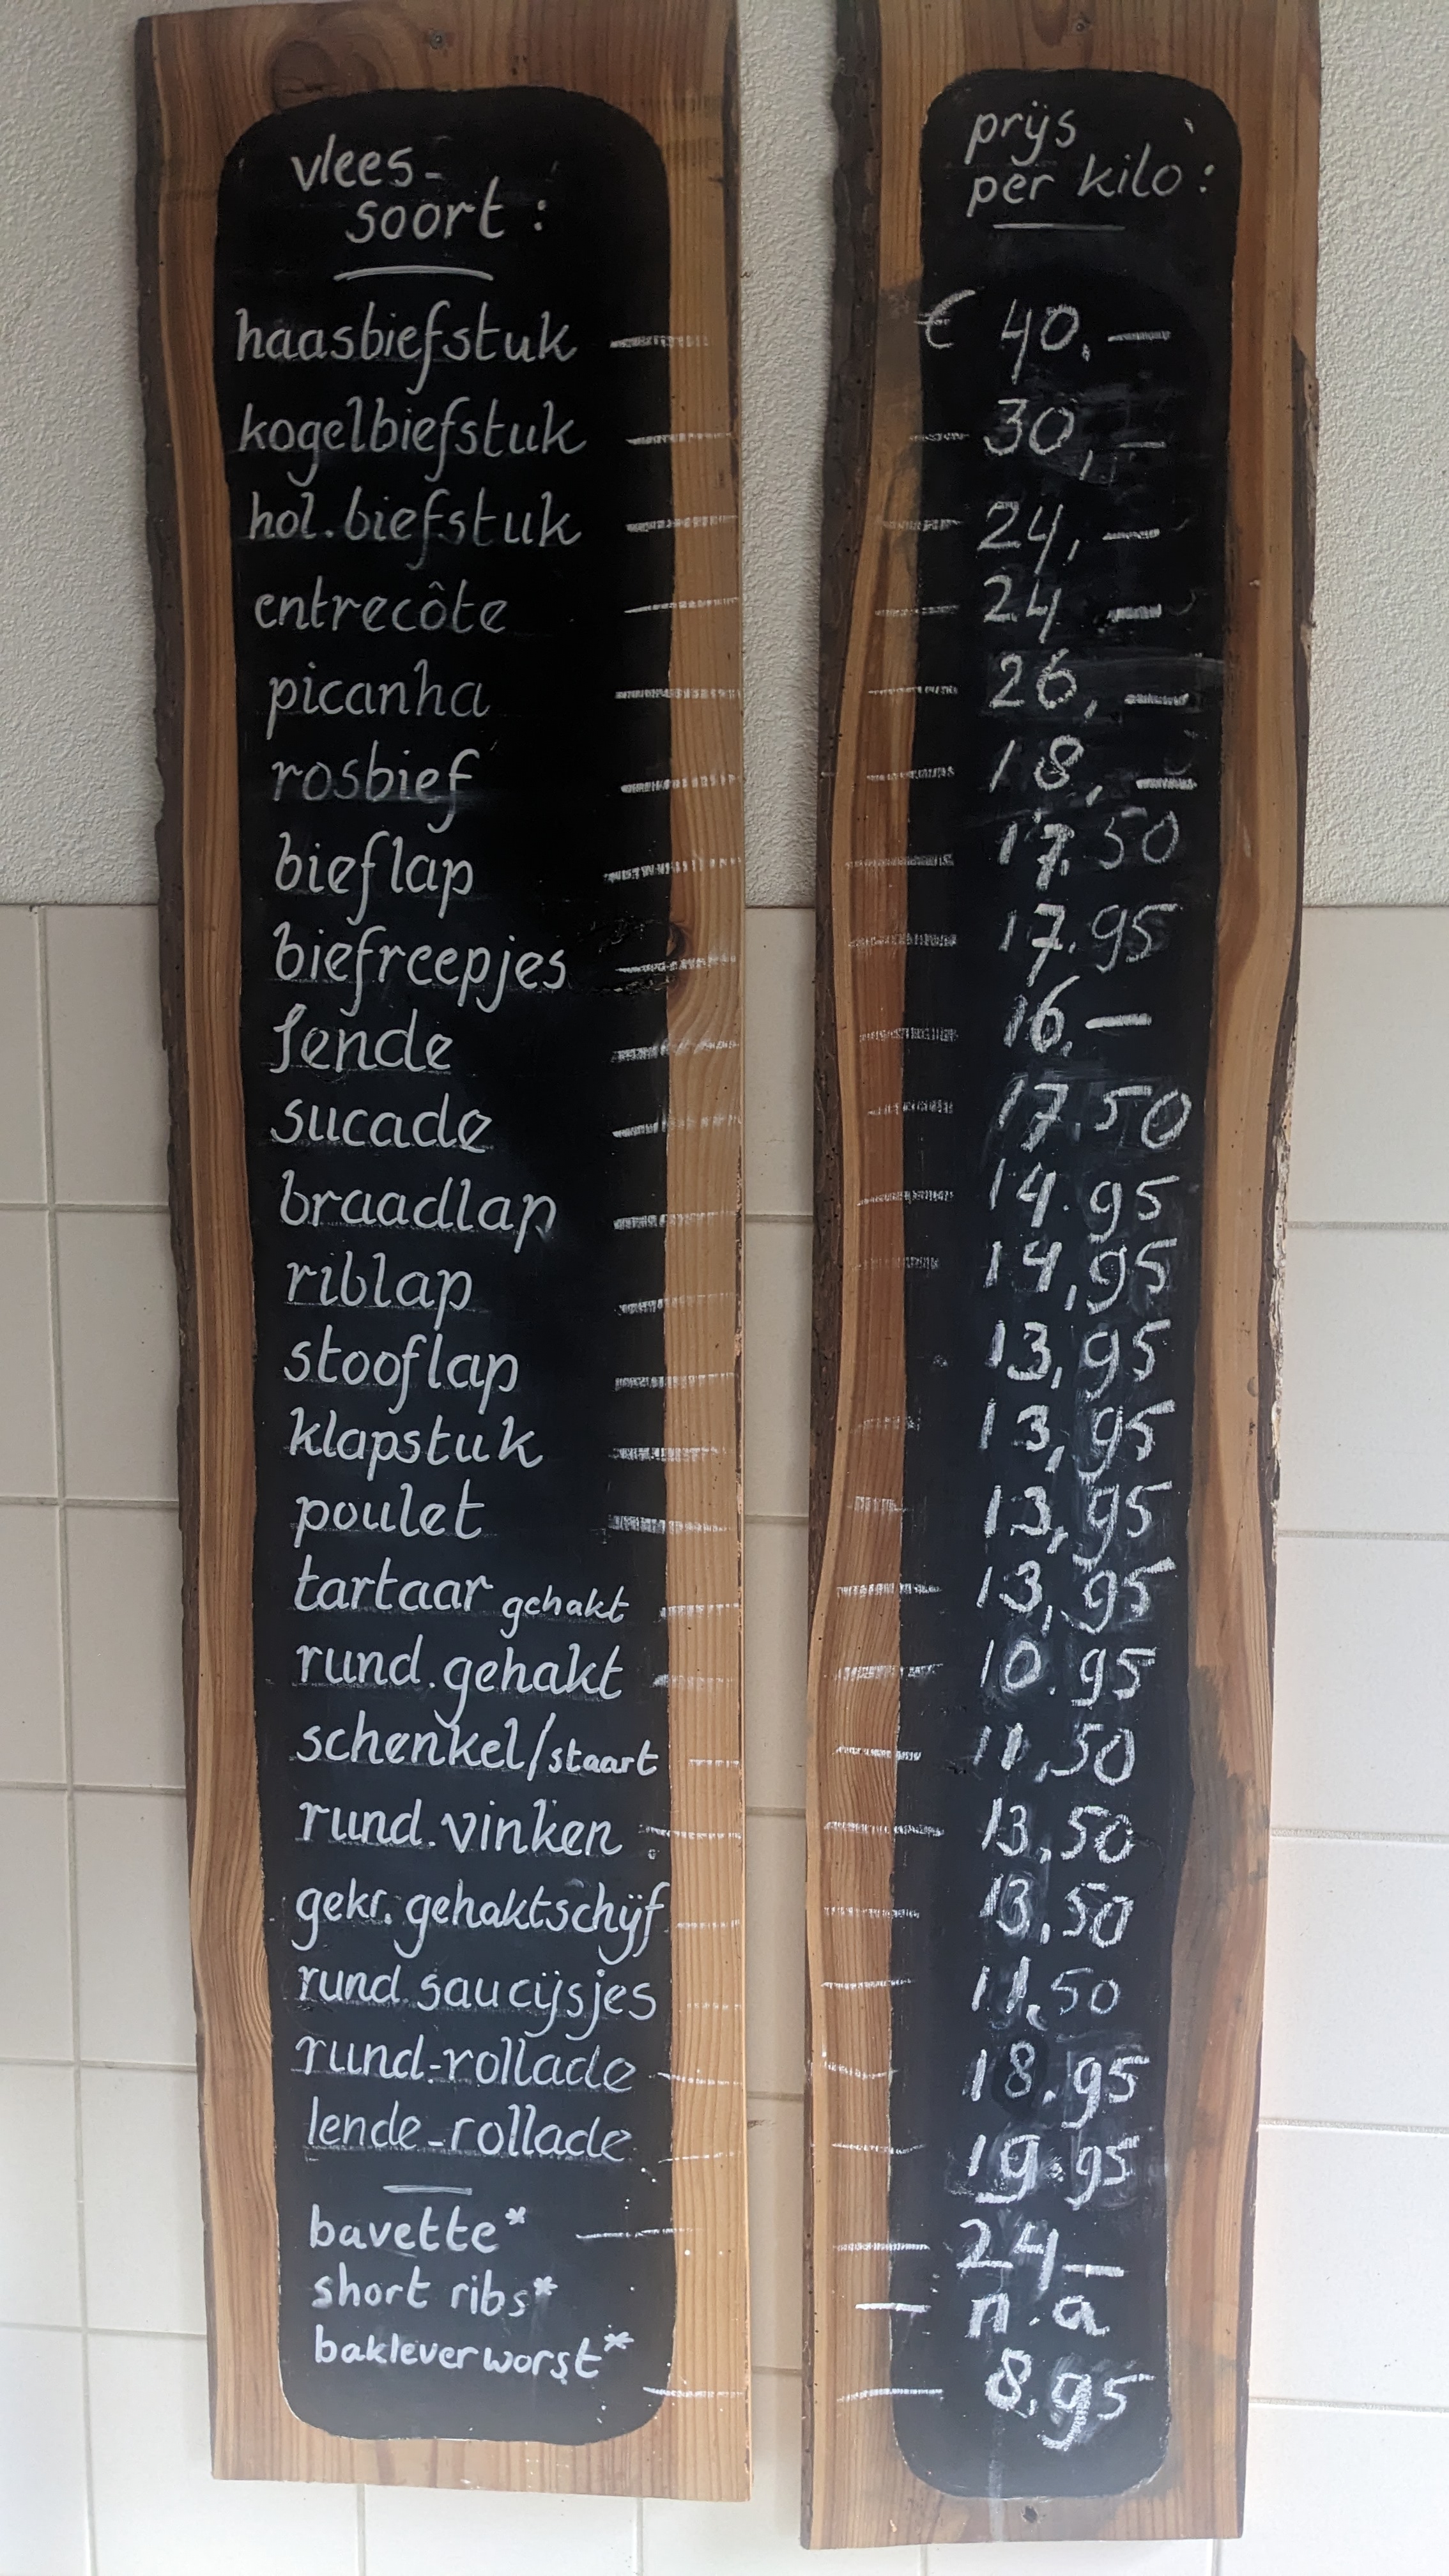 vlees-
soort:
haasbiefstuk
kogelbiefstuk
hol. biefstuk
entrecôte
picanha
rosbief
bieflap
biefreepjes
lende
sucade
braadlap
riblap
stooflap
klapstuk
poulet
tartaar gehakt
rund. gehakt
schenkel/staart
rund. vinken
gekr. gehaktschijf
rund. saucijsjes
rund-rollade
lende-rollade
bavette*
short ribs*
bakleverworst*
prijs
per kilo:
€ 40,—
30,—
24,—
24 —
26,—
18,—
17.50
17.95
16,—
17.50
14.95
14,95
13,95
13,95
13,95
13,95
10.95
11,50
13,50
13,50
11,50
18.95
19.95
24—
n.a
8,95